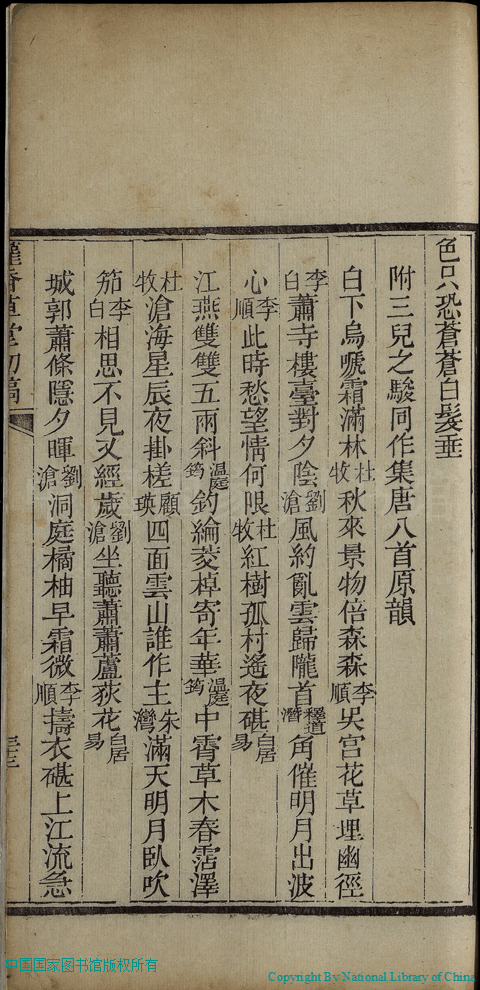 色只恐蒼蒼白髮垂
附三兒之駿同作集唐八首原韻
白下烏嗁霜滿林杜牧秋來景物倍森森李順吳宮花草埋幽徑
李白蕭寺樓臺對夕陰劉滄風約亂雲歸隴首釋道潛角催明月出波
心李順此時愁望情何限杜牧紅樹孤村遙夜碪白居易
江燕雙雙五兩斜溫庭筠釣綸菱棹寄年華溫庭筠中霄草木春霑澤
杜牧滄海星辰夜掛槎顧瑛四面雲山誰作主朱灣滿天明月臥吹
笳李白相思不見又經歲劉滄坐聽蕭蕭蘆荻花白居易
城郭蕭條隱夕暉劉滄洞庭橘柚早霜微李順擣衣碪上江流急
香草堂初稿
三三
中国国家图书馆版权所有
Copyright By National Library of China